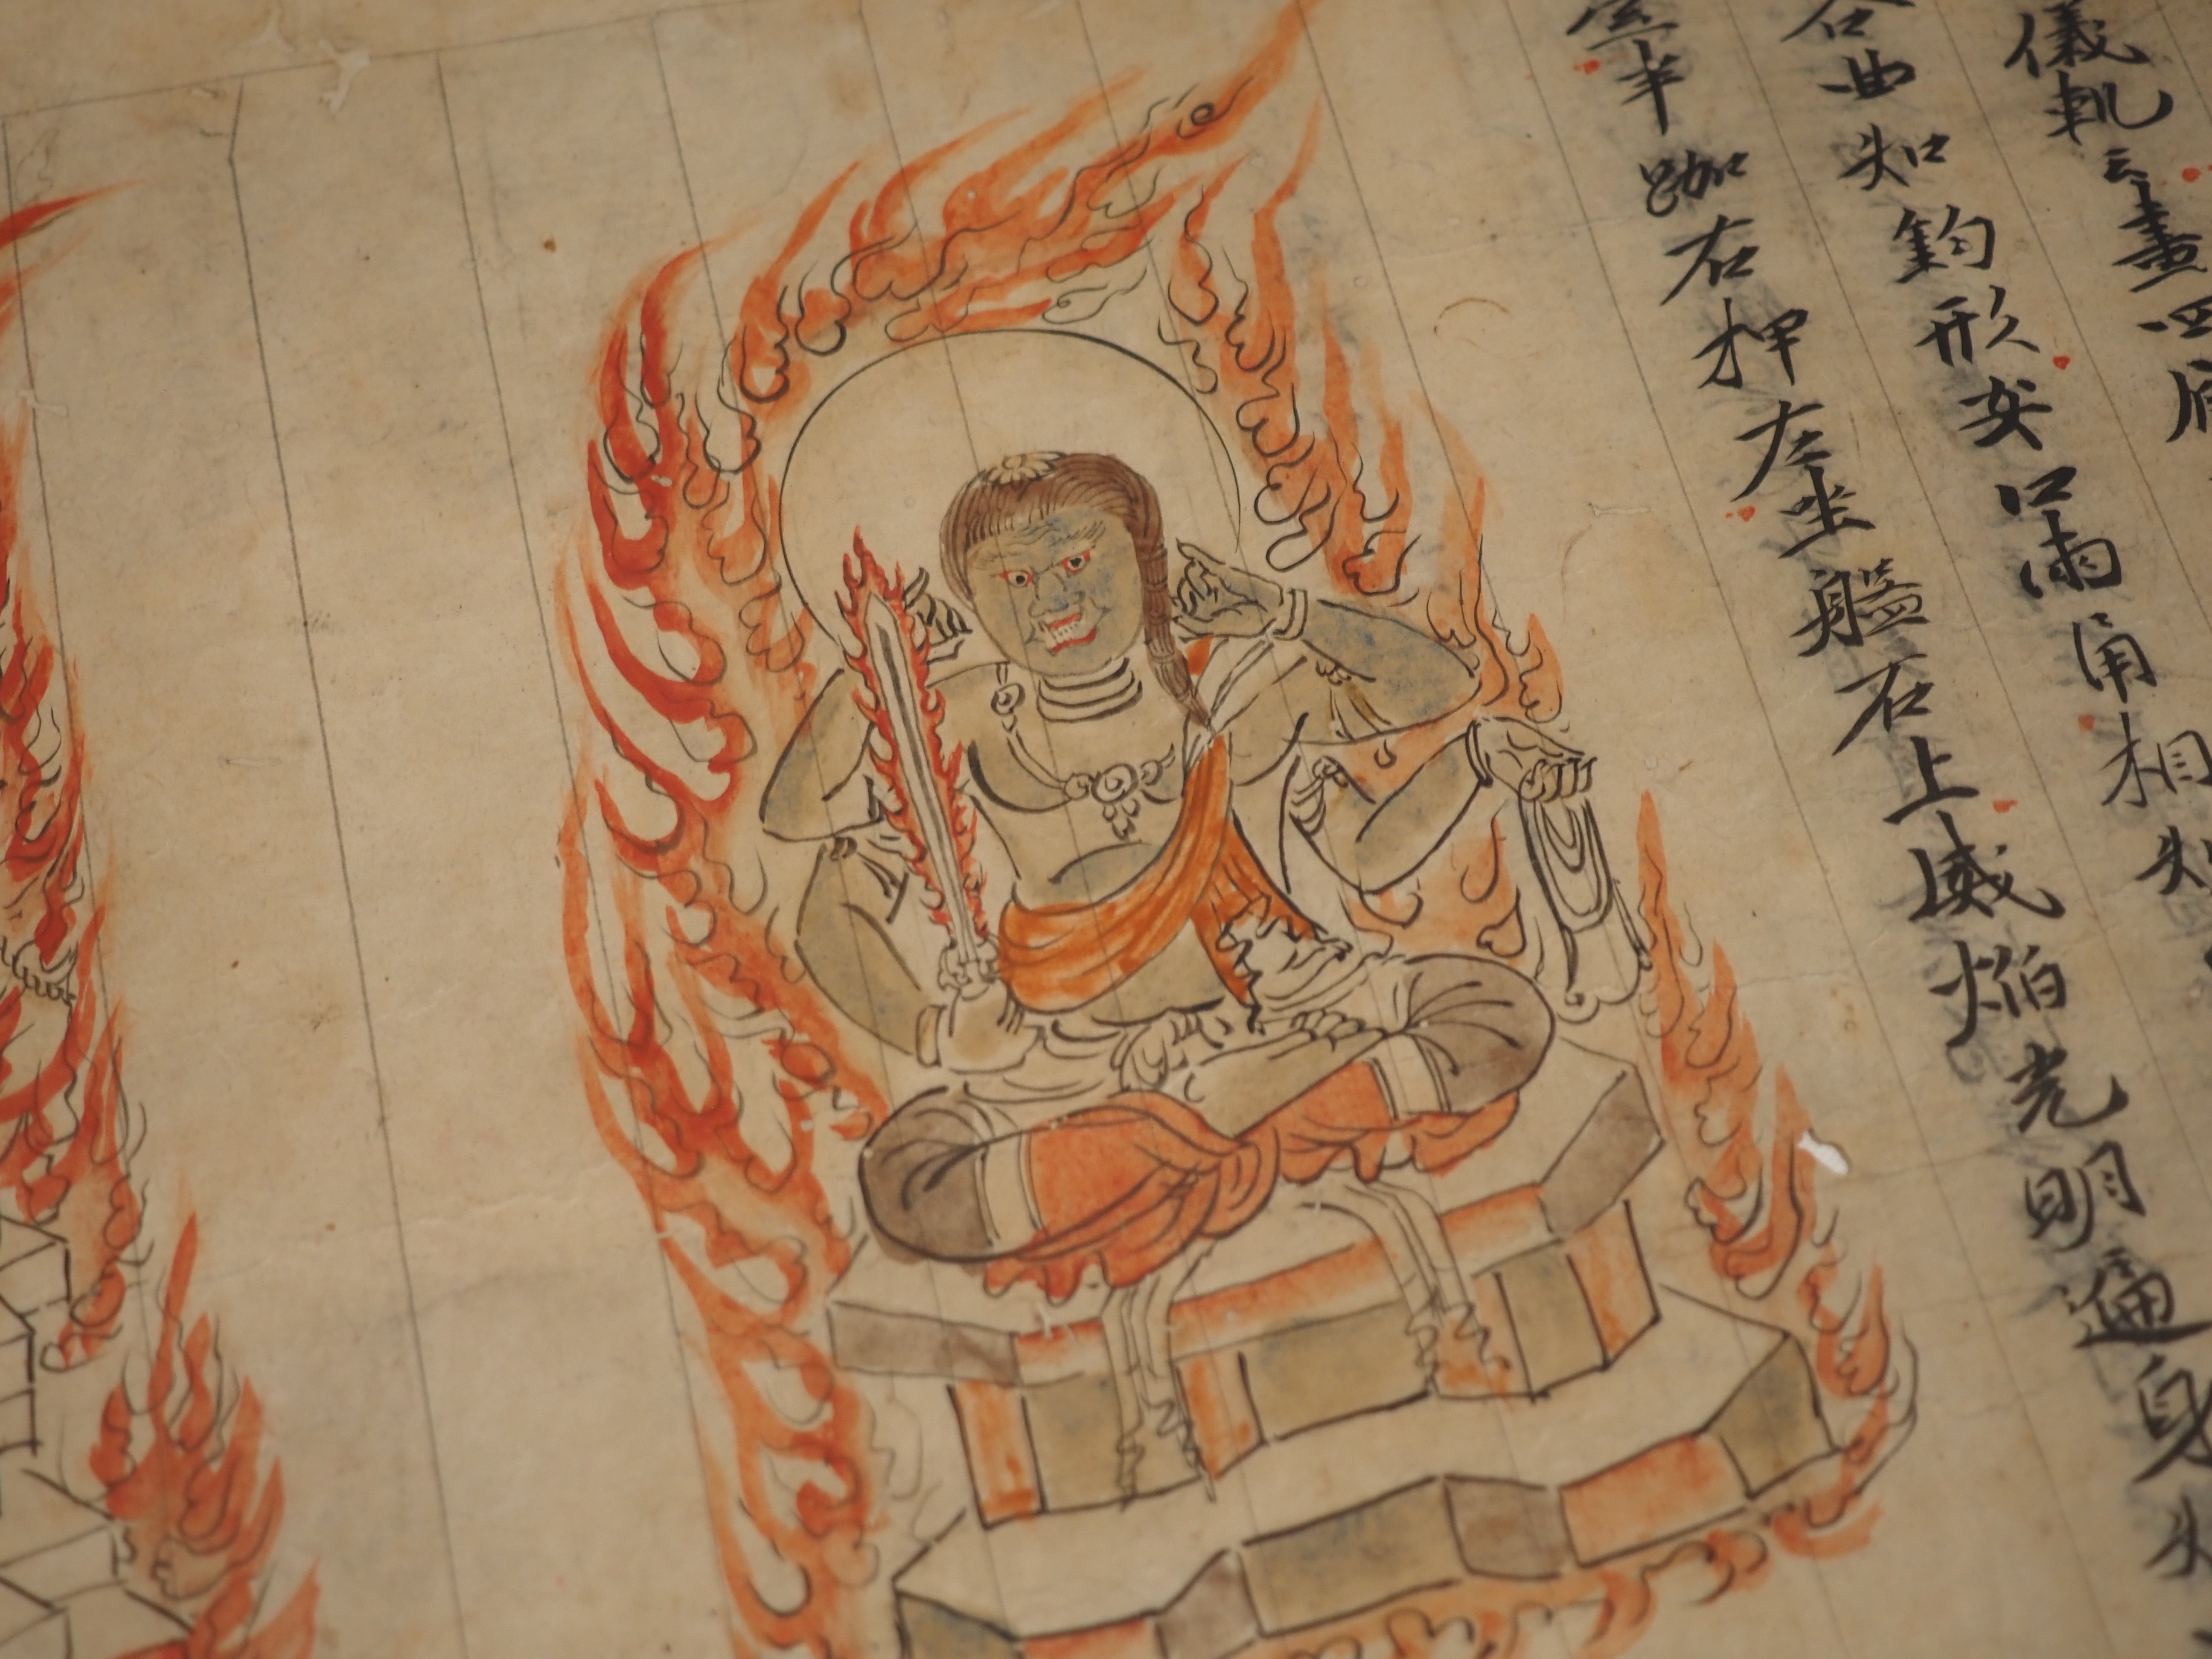 儀軌云畫四臂
合曲如鉤形安口兩角相如
半跏右押左坐盤石上威焔光明遍身